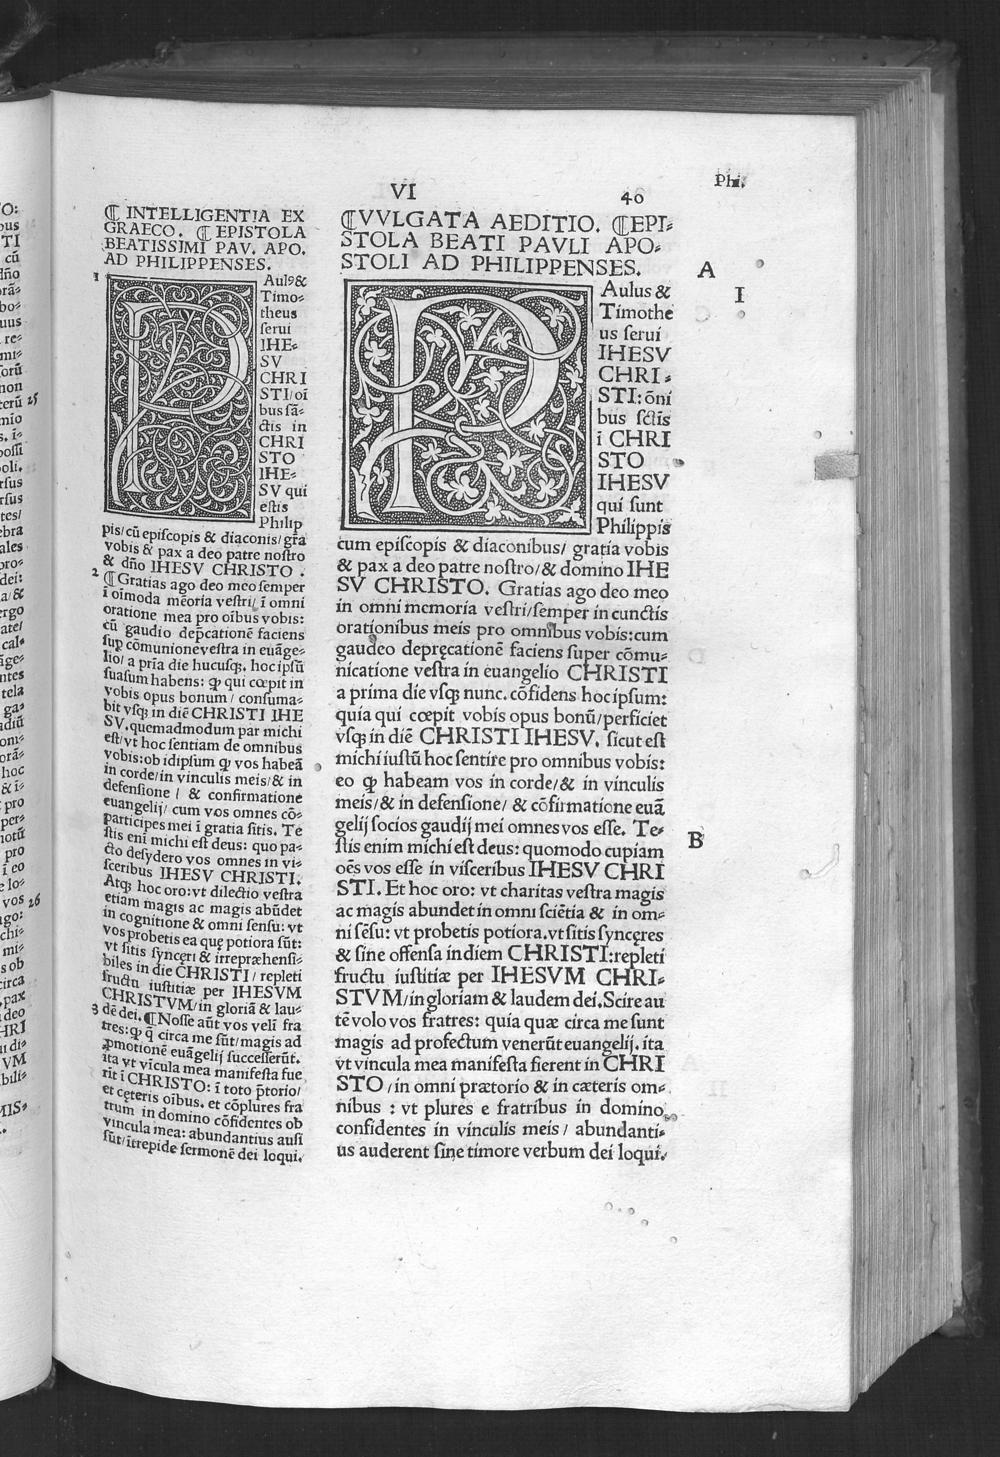 Phi.
VI
40
¶ INTELLIGENTIA EX
GRAECO. ¶ EPISTOLA
BEATISSIMI PAV. APO.
AD PHILIPPENSES.
1
Aulꝰ &
Timo⸗
theus
ſerui
IHE⸗
SV
CHRI
STI/oī
bus ſā⸗
ctis in
CHRI
STO
IHE⸗
SV qui
eſtis
Philip
pis/cū epiſcopis & diaconis/grā
vobis & pax a deo patre noſtro
& dño IHESV CHRISTO .
2 ¶ Gratias ago deo meo ſemper
ī oīmoda mēoria veſtri/ ī omni
oratione mea pro oībus vobis:
cū gaudio dep̄catione faciens
ſuꝑ cōmunione veſtra in euāge⸗
lio/ a prīa die hucuſqꝫ. hoc ipſū
ſuaſum habens: ꝙ qui cœpit in
vobis opus bonum / conſuma⸗
bit vſqꝫ in diē CHRISTI IHE
SV. quemadmodum par michi
eſt/vt hoc ſentiam de omnibus
vobis: ob idipſum ꝙ vos habeā
in corde/in vinculis meis/& in
defenſione / & confirmatione
euangelij/ cum vos omnes cō⸗
participes mei ī gratia ſitis. Te
ſtis enī michi eſt deus: quo pa⸗
cto deſydero vos omnes in vi⸗
ſceribus IHESV CHRISTI.
Atqꝫ hoc oro: vt dilectio veſtra
etiam magis ac magis abūdet
in cognitione & omni ſenſu: vt
vos probetis ea quę potiora ſūt:
vt ſitis ſyncęri & irrepræhenſi⸗
biles in die CHRISTI / repleti
fructu iuſtitiæ per IHESVM
CHRISTVM/in gloriā & lau⸗
3 dē dei. ¶ Noſſe aūt vos velī fra
tres: ꝙ q̄ circa me ſūt/magis ad
ꝓmotionē euāgelij ſucceſſerūt.
ita vt vīcula mea manifeſta fue
rit ī CHRISTO: ī toto p̄torio/
et cęteris oībus. et cōplures fra
trum in domino cōfidentes ob
vincula mea: abundantius auſi
ſūt/ītrepide ſermonē dei loqui.
¶VVLGATA AEDITIO. ¶EPI⸗
STOLA BEATI PAVLI APO⸗
STOLI AD PHILIPPENSES.
A
I
Aulus &
Timothe
us ſerui
IHESV
CHRI⸗
STI: ōni
bus ſctīs
ī CHRI
STO
IHESV
qui ſunt
Philippis
cum epiſcopis & diaconibus/ gratia vobis
& pax a deo patre noſtro/& domino IHE
SV CHRISTO. Gratias ago deo meo
in omni memoria veſtri/ſemper in cunctis
orationibus meis pro omnibus vobis: cum
gaudeo depręcationē faciens ſuper cōmu⸗
nicatione veſtra in euangelio CHRISTI
a prima die vſqꝫ nunc. cōfidens hoc ipſum:
quia qui cœpit vobis opus bonū/perficiet
vſqꝫ in diē CHRISTI IHESV. ſicut eſt
michi iuſtū hoc ſentire pro omnibus vobis:
eo ꝙ habeam vos in corde/& in vinculis
meis/& in defenſione/ & cōfirmatione euā
gelij ſocios gaudij mei omnes vos eſſe. Te⸗
ſtis enim michi eſt deus: quomodo cupiam
B
oēs vos eſſe in viſceribus IHESV CHRI
STI. Et hoc oro: vt charitas veſtra magis
ac magis abundet in omni ſciētia & in om⸗
ni ſēſu: vt probetis potiora. vt ſitis ſyncęres
& ſine offenſa in diem CHRISTI: repleti
fructu iuſtitiæ per IHESVM CHRI⸗
STVM/in gloriam & laudem dei. Scire au
tē volo vos fratres: quia quæ circa me ſunt
magis ad profectum venerūt euangelij. ita
vt vincula mea manifeſta fierent in CHRI
STO /in omni prætorio & in cæteris om⸗
nibus : vt plures e fratribus in domino
confidentes in vinculis meis / abundanti⸗
us auderent ſine timore verbum dei loqui.
25
26